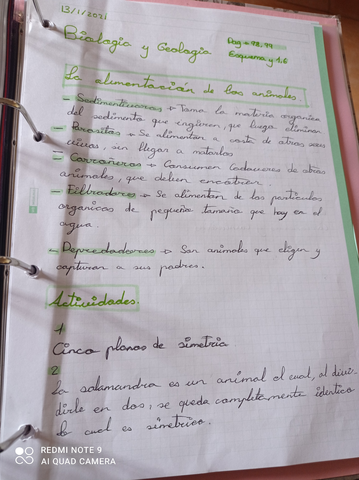 13/1/2021
Biología y Geología
Pag = 98, 99
Esquema y 1.6
La alimentación de los animales.
- Sedimentívoros → Toma la materia organica
del sedimento que ingieren, que luego eliminan
- Parasitos → Se alimentan a costa de otros seres
vivos, sin llegar a matarlos
- Carroñeros → Consumen cadaveres de otros
animales, que deben encontrar.
- Filtradores → Se alimentan de las particulas
organicas de pequeño tamaño que hay en el
agua.
- Depredadores → Son animales que eligen y
capturan a sus padres.
Actividades.
1
Cinco planos de simetria
2
La salamandra es un animal el cual, al divi-
dirle en dos, se queda completamente identico
lo cual es simetrico.
REDMI NOTE 9
AI QUAD CAMERA